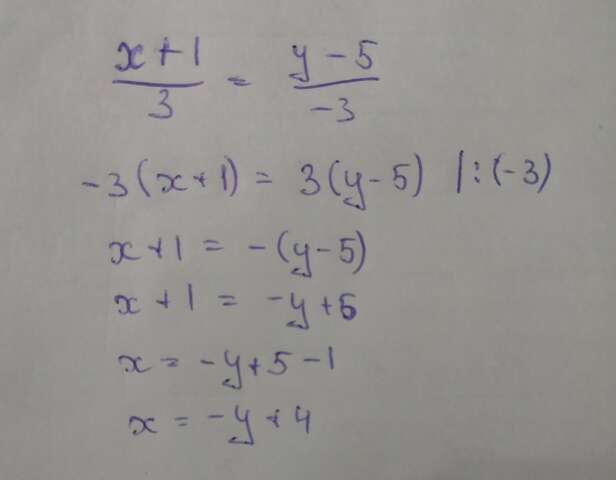 (x+1)/3 = (y-5)/-3
-3(x+1) = 3(y-5) |:(-3)
x+1 = -(y-5)
x+1 = -y+5
x = -y+5-1
x = -y+4